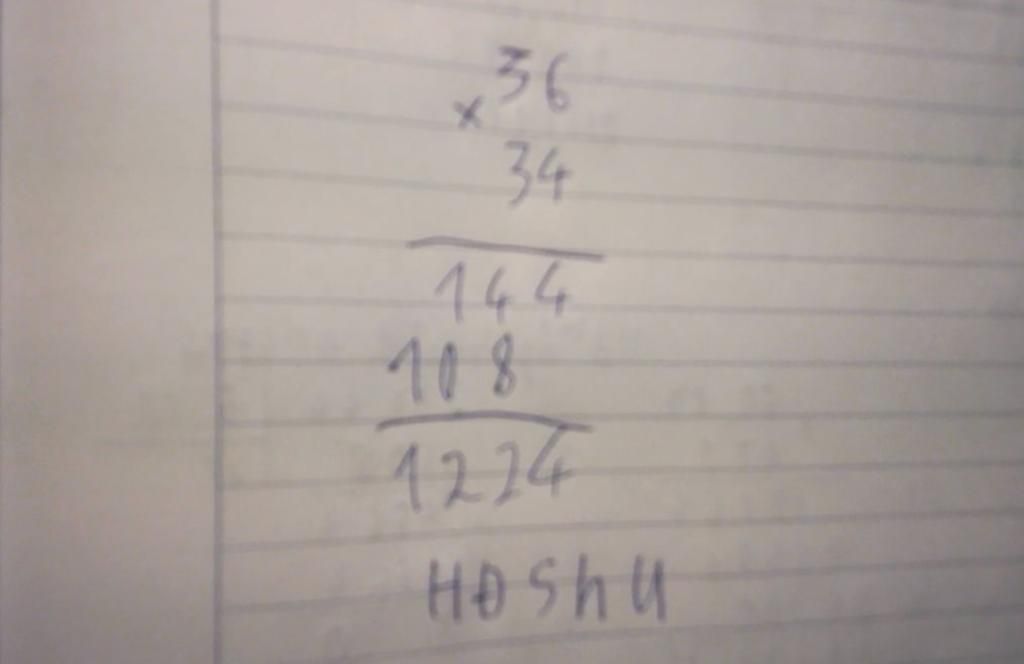 36
×
34
144
108
1224
HOShU